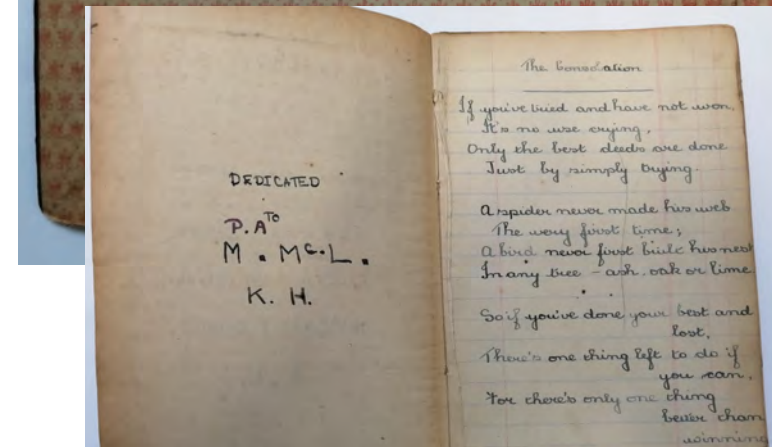 DEDICATED
TO
P.A
M. McL.
K. H.
The Consolation
If you've tried and have not won,
It's no use crying,
Only the best deeds are done
Just by simply trying.
A spider never made his web
The very first time;
A bird never first built his nest
In any tree - ash, oak or lime
So if you've done your best and
lost,
There's one thing left to do if
you can,
For there's only one thing
better than
winning